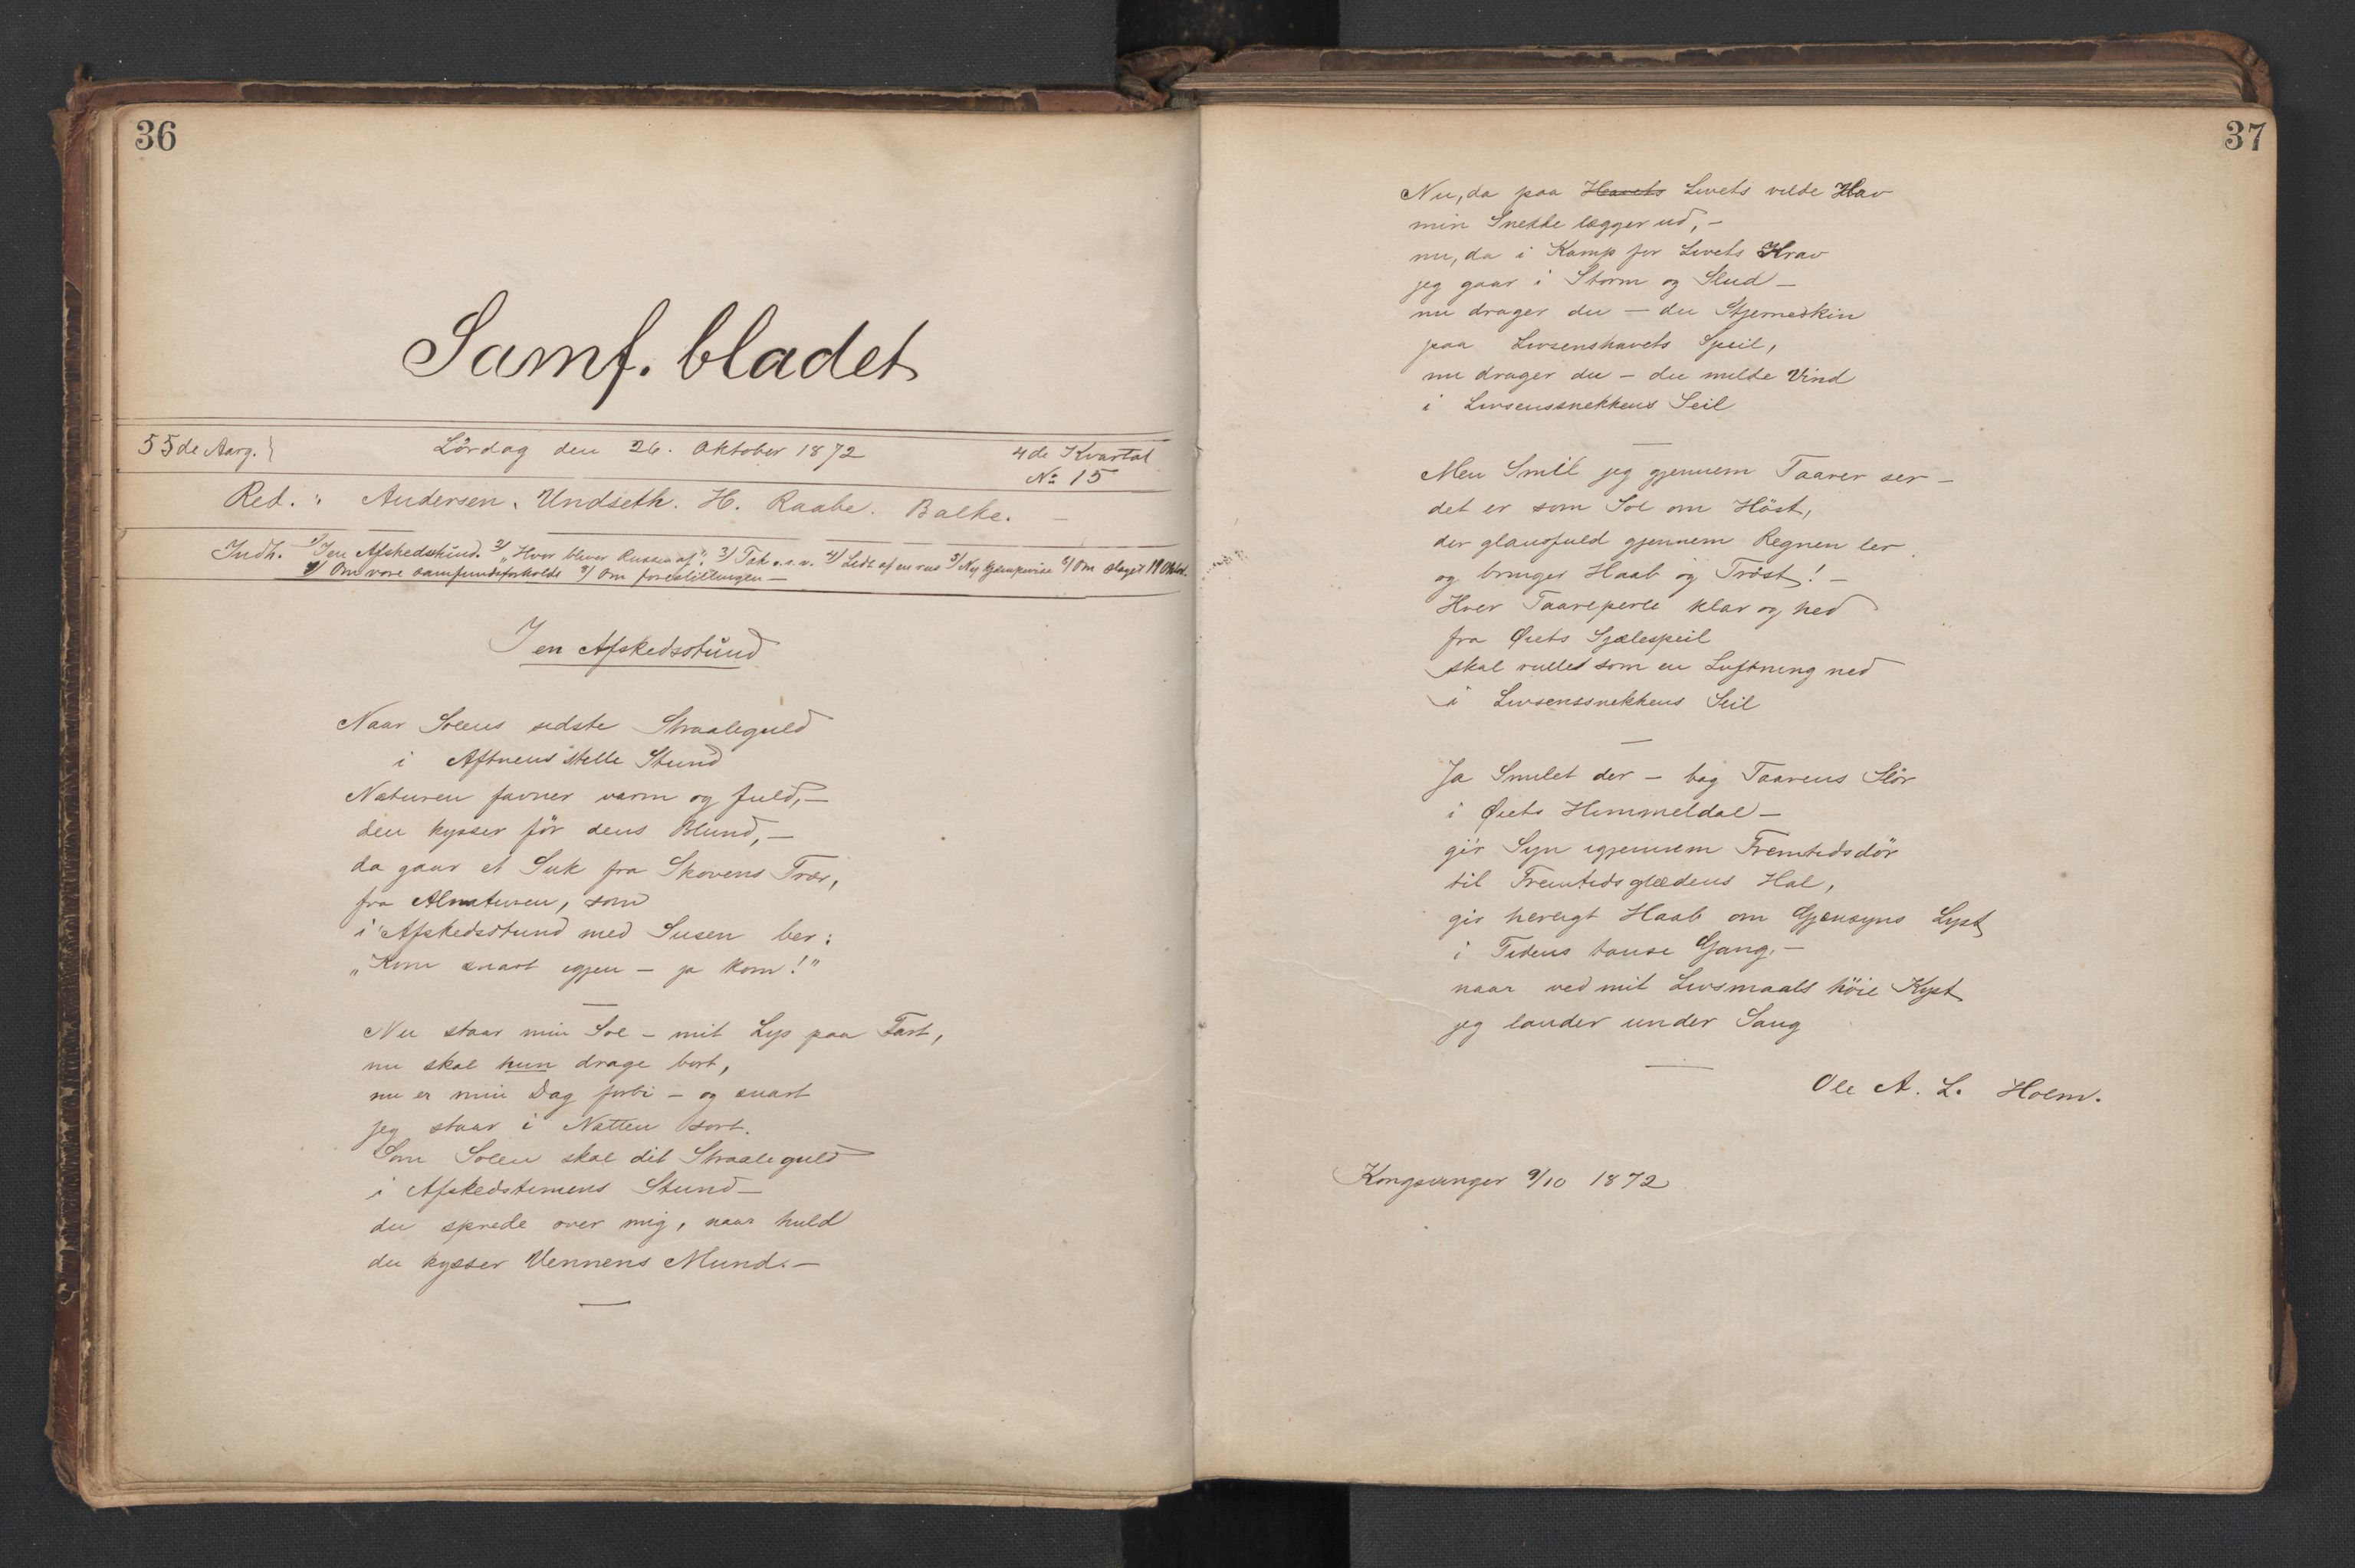 36
Samf. bladet
55de Aarg.
Lördag den 26. Oktober 1872
4de Kvartal
No 15
Red.: Andersen. Undseth. H. Raabe. Balke. —
Indh. 1) I en Afskedsstund. 2) „Hvor bliver Russen af". 3) Tak o.s.v. 4) Lidt af en rus 5) Ny Kjæmpevise 6) Om Slaget 19 Oktob.
7) Om vore Samfundsforholde 8) Om forestillingen —
I en Afskedsstund
Naar Solens sidste Straaleguld
i Aftnens stille Stund
Naturen favner varm og fuld, —
den kysser för dens Blund, —
da gaar et Suk fra Skovens Trær,
fra Alnaturen, som
i Afskedsstund med Susen ber:
„Kom snart igjen — ja kom!"
Nu staar min Sol — mit Lys paa Fart,
nu skal hun drage bort,
nu er min Dag forbi — og snart
jeg staar i Natten sort.
Som Solen skal dit Straaleguld
i Afskedstimens Stund —
du sprede over mig, naar huld
du kysser Vennens Mund. —
37
Nu, da paa Havets Livets vilde Hav
min Snekke lægger ud, —
nu, da i Kamp for Livets Krav
jeg gaar i Storm og Slud —
nu drager du — du Stjerneskin
paa Livsenshavets Speil,
nu drager du — du milde Vind
i Livsenssnekkens Seil
Men Smil jeg gjennem Taarer ser —
det er som Sol om Höst,
der glansfuld gjennem Regnen ler
og bringer Haab og Tröst! —
Hver Taareperle klar og hed
fra Øiets Sjælespeil
skal rulle som en Luftning ned
i Livsenssnekkens Seil
Ja Smilet der — bag Taarens Slör
i Øiets Himmeldal —
gir Syn igjennem Fremtidsdör
til Fremtidsglædens Hal,
gir herligt Haab om Gjensyns Lyst
i Tidens tause Gang. —
naar ved mit Livsmaals höie Kyst
jeg lander under Sang
Ole A. L. Holm.
Kongsvinger 9/10 1872